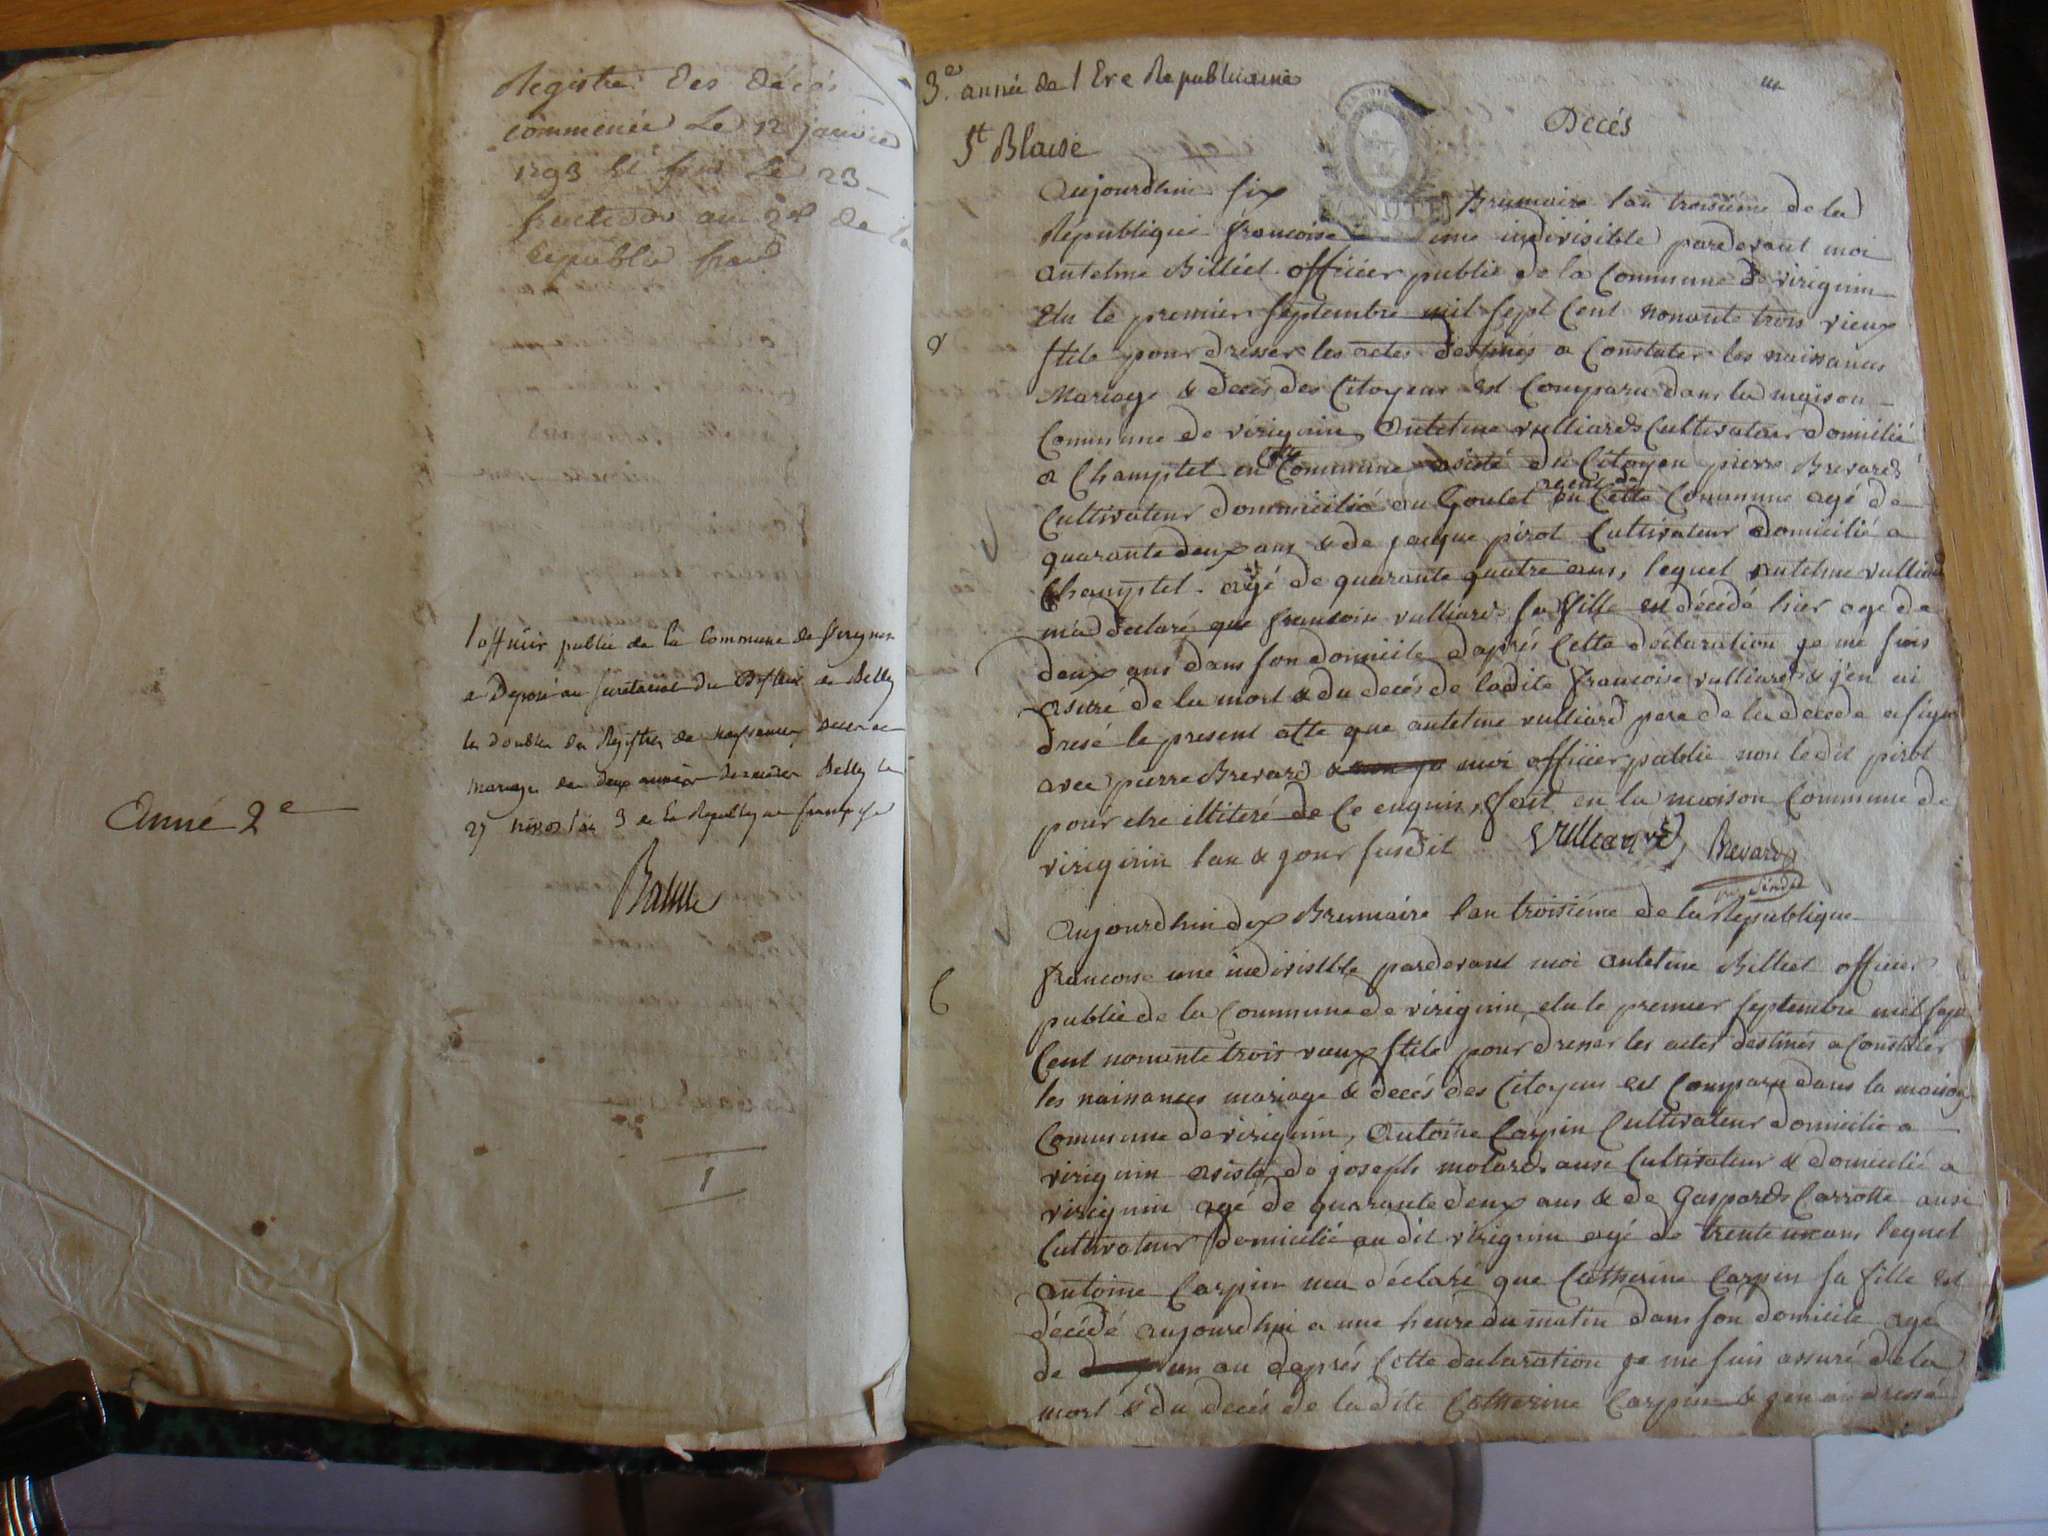 Registre des décés
commencée Le 12 janvie
1793 et fini Le 23
fructidor an 2d de la
Republic franc
l officier public de la Commune de Virignin
a Deposé au secretariat du District de Belley
les doubles des Registres de naissances, decès et
mariage des deux années dernieres Belley le
27 nivos l'an 3 de la Republique françoise
Anné 2e
1
3e année de l Ere Republicaine
Decés
St Blaise
Aujourdhui six Brumaire l'an troisiéme de la
Republique francoise une indivisible pardevant moi
Antelme Billiet officier public de la Commune de virignin
Elu le premier Septembre mil sept Cent nonante trois vieux
stile pour dresser les actes destinés a Constater les naissances
Mariage & decés des Citoyens est Comparu dans la maison
Commune de virignin, Antelme vulliard Cultivateur domicilié
a Champtel en Commune asisté du Citoyen pierre Brevard
Cultivateur dommicilié au Goulet en Cette Commune agé de
quarante deux ans & de jacque pirot Cultivateur domicilié a
Champtel agé de quarante quatre ans, lequel antelme vulliard
m'a déclaré que francoise vulliard sa fille est décédé hier age de
deux ans dans son domicile d'aprés Cette déclaration je me suis
asuré de la mort & du decés de ladite francoise vulliard & j'en ai
dresé le present atte que antelme vulliard pere de la decede a signé
avec pierre Brevard & moi officier public non le dit pirot
pour etre illiteré de Ce enquis, fait en la maison Commune de
virignin l'an & jour susdit Vulliard Brevard
Aujourdhui dix Brumaire l'an troisiéme de la Republique
francoise une indivisible pardevant moi antelme Billiet officier
public de la Commune de virignin elu le premier Septembre mil sept
Cent nonante trois vieux stile pour dresser les actes destinés a Constater
les naissances mariage & decés des Citoyens est Comparu dans la maison
Commune de virignin, Antoine Carpin Cultivateur domicilié a
virignin asisté de joseph molard ausi Cultivateur & domicilié a
virignin agé de quarante deux ans & de Gaspard Carrotte ausi
Cultivateur domicilié au dit virignin agé de trente un ans lequel
antoine Carpin m'a déclaré que Catherine Carpin sa fille est
décédé aujourdhui a une heure du matin dans son domicile age
de un an d'aprés Cette declaration je me suis assuré de la
mort & du decés de la dite Catherine Carpin & j'en ai dressé